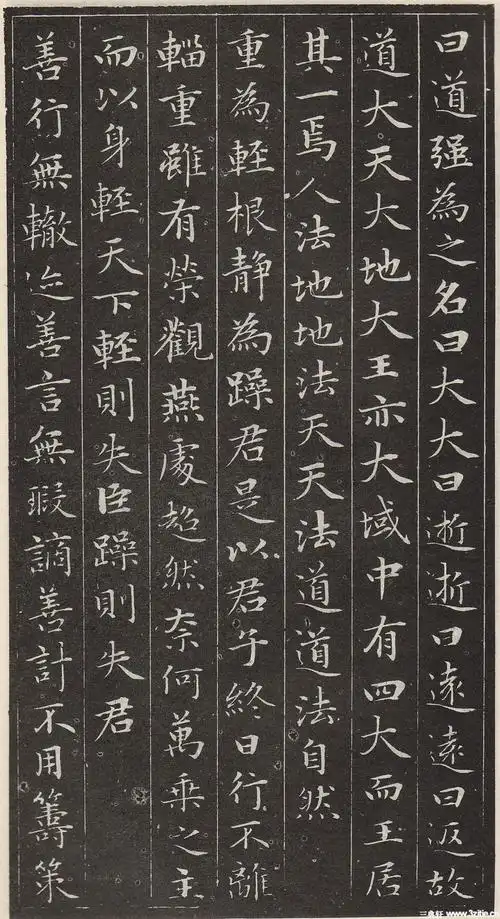 曰道强為之名曰大大曰逝逝曰遠遠曰返故
道大天大地大王亦大域中有四大而王居
其一焉人法地地法天天法道道法自然
重為輊根静為躁君是以君子終日行不離
輜重雖有榮觀燕處超然奈何萬乘之主
而以身輊天下輊則失臣躁則失君
善行無轍迹善言無瑕謫善計不用籌策
三品轩 www.3zitie.cn